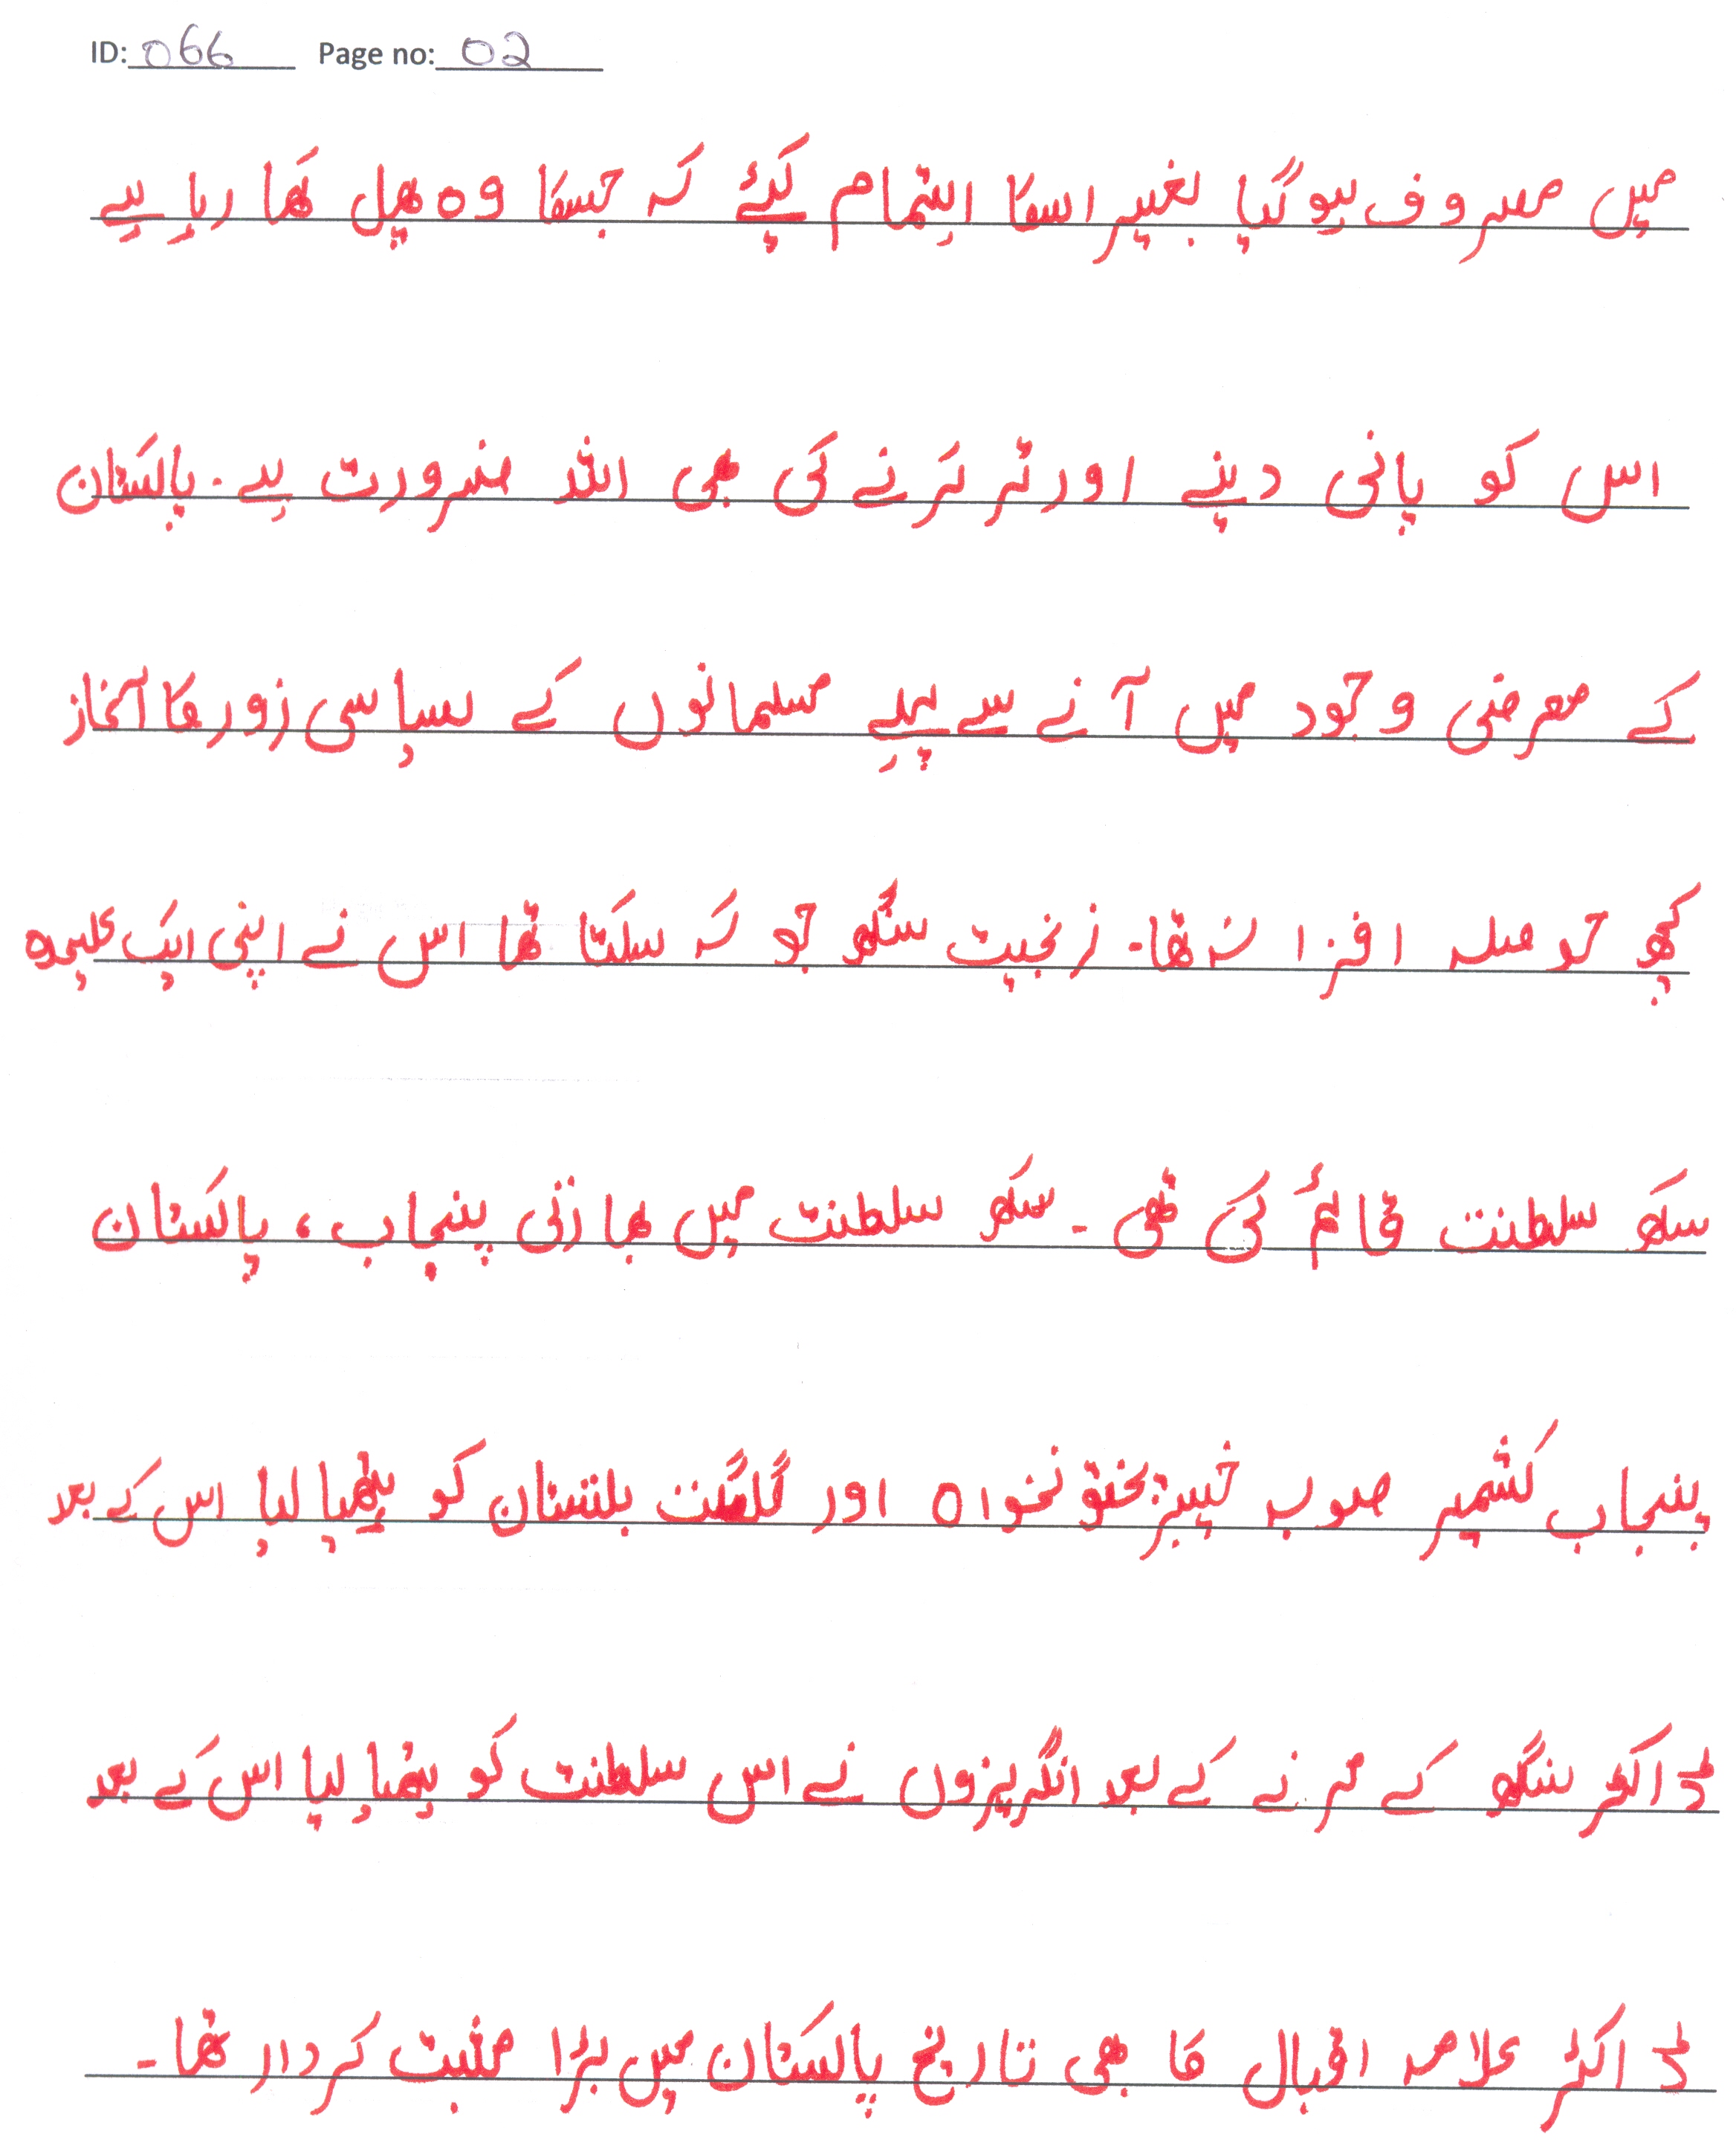 ID: 066 Page no: 02
میں مصروف ہوگیا بغیر اسکا اہتمام کیئے کہ جسکا وہ پھل کھا رہا ہے
اس کو پانی دینے اور تر کرنے کی بھی اشد ضرورت ہے۔ پاکستان
کے معرضی وجود میں آنے سے پہلے مسلمانوں کے سیاسی زور کا آغاز
کچھ حوصلہ افزا نہ تھا۔ رنجیت سنگھ جو کہ سکتا تھا اس نے اپنی ایک علیحدہ
سکھ سلطنت قائم کی تھی۔ سکھ سلطنت میں بھارتی پنجاب، پاکستان
پنجاب کشمیر صوب خیبرپختونخواہ اور گلگت بلتستان کو ہتھیا لیا اس کے بعد
ڈاکٹر سنگھ کے مرنے کے بعد انگریزوں نے اس سلطنت کو ہتھیا لیا اس کے بعد
ڈاکٹر علامہ اقبال کا بھی تاریخ پاکستان میں بڑا مثبت کردار تھا۔